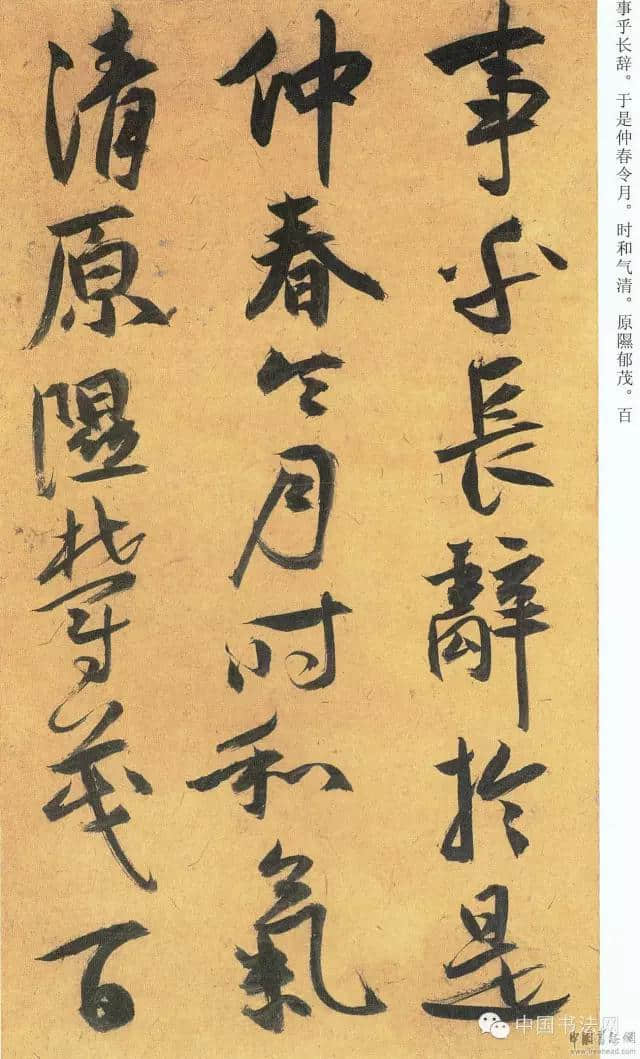 事乎長辭於是
仲春令月时和氣
清原隰欝茂百
事乎长辞。于是仲春令月。时和气清。原隰郁茂。百
中国书法网
中國書法網
www.freehead.com